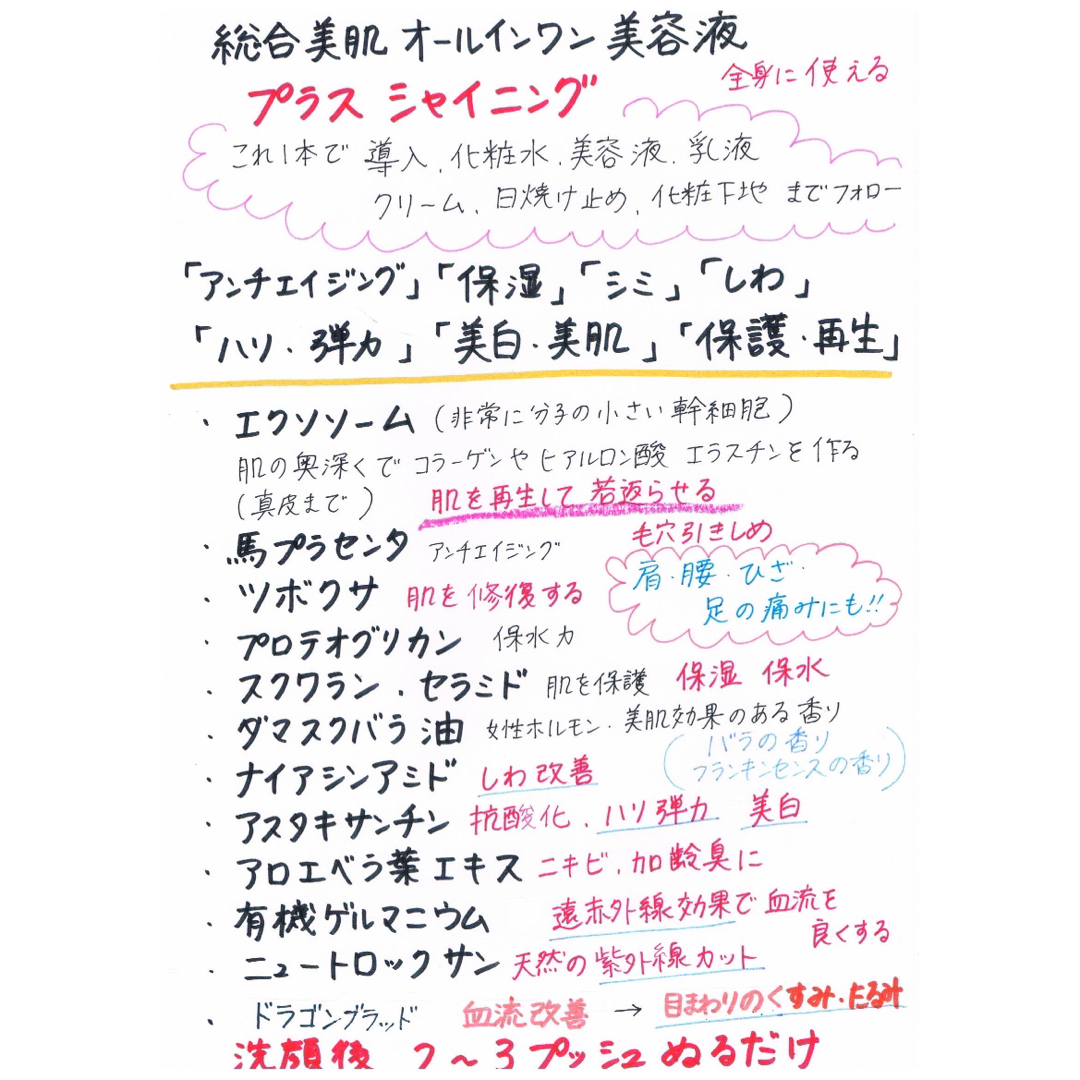 総合美肌 オールインワン 美容液
全身に使える
プラス シャイニング
これ1本で 導入、化粧水、美容液、乳液
クリーム、日焼け止め、化粧下地 までフォロー
「アンチエイジング」「保湿」「シミ」「しわ」
「ハリ・弾力」「美白・美肌」「保護・再生」
・エクソソーム (非常に分子の小さい幹細胞)
肌の奥深くで コラーゲンや ヒアルロン酸 エラスチンを作る
(真皮まで) 肌を再生して 若返らせる
・馬プラセンタ アンチエイジング 毛穴引きしめ
・ツボクサ 肌を修復する
肩・腰・ひざ・
足の痛みにも!!
・プロテオグリカン 保水力
・スクワラン、セラミド 肌を保護 保湿 保水
・ダマスクバラ油 女性ホルモン・美肌効果のある香り
(バラの香り
フランキンセンスの香り)
・ナイアシンアミド しわ改善
・アスタキサンチン 抗酸化、ハリ弾力 美白
・アロエベラ葉エキス ニキビ、加齢臭に
・有機ゲルマニウム 遠赤外線効果で血流を
良くする
・ニュートロックサン 天然の紫外線カット
・ドラゴンブラッド 血流改善 → 目まわりのくすみ・たるみ
洗顔後 2〜3プッシュ ぬるだけ